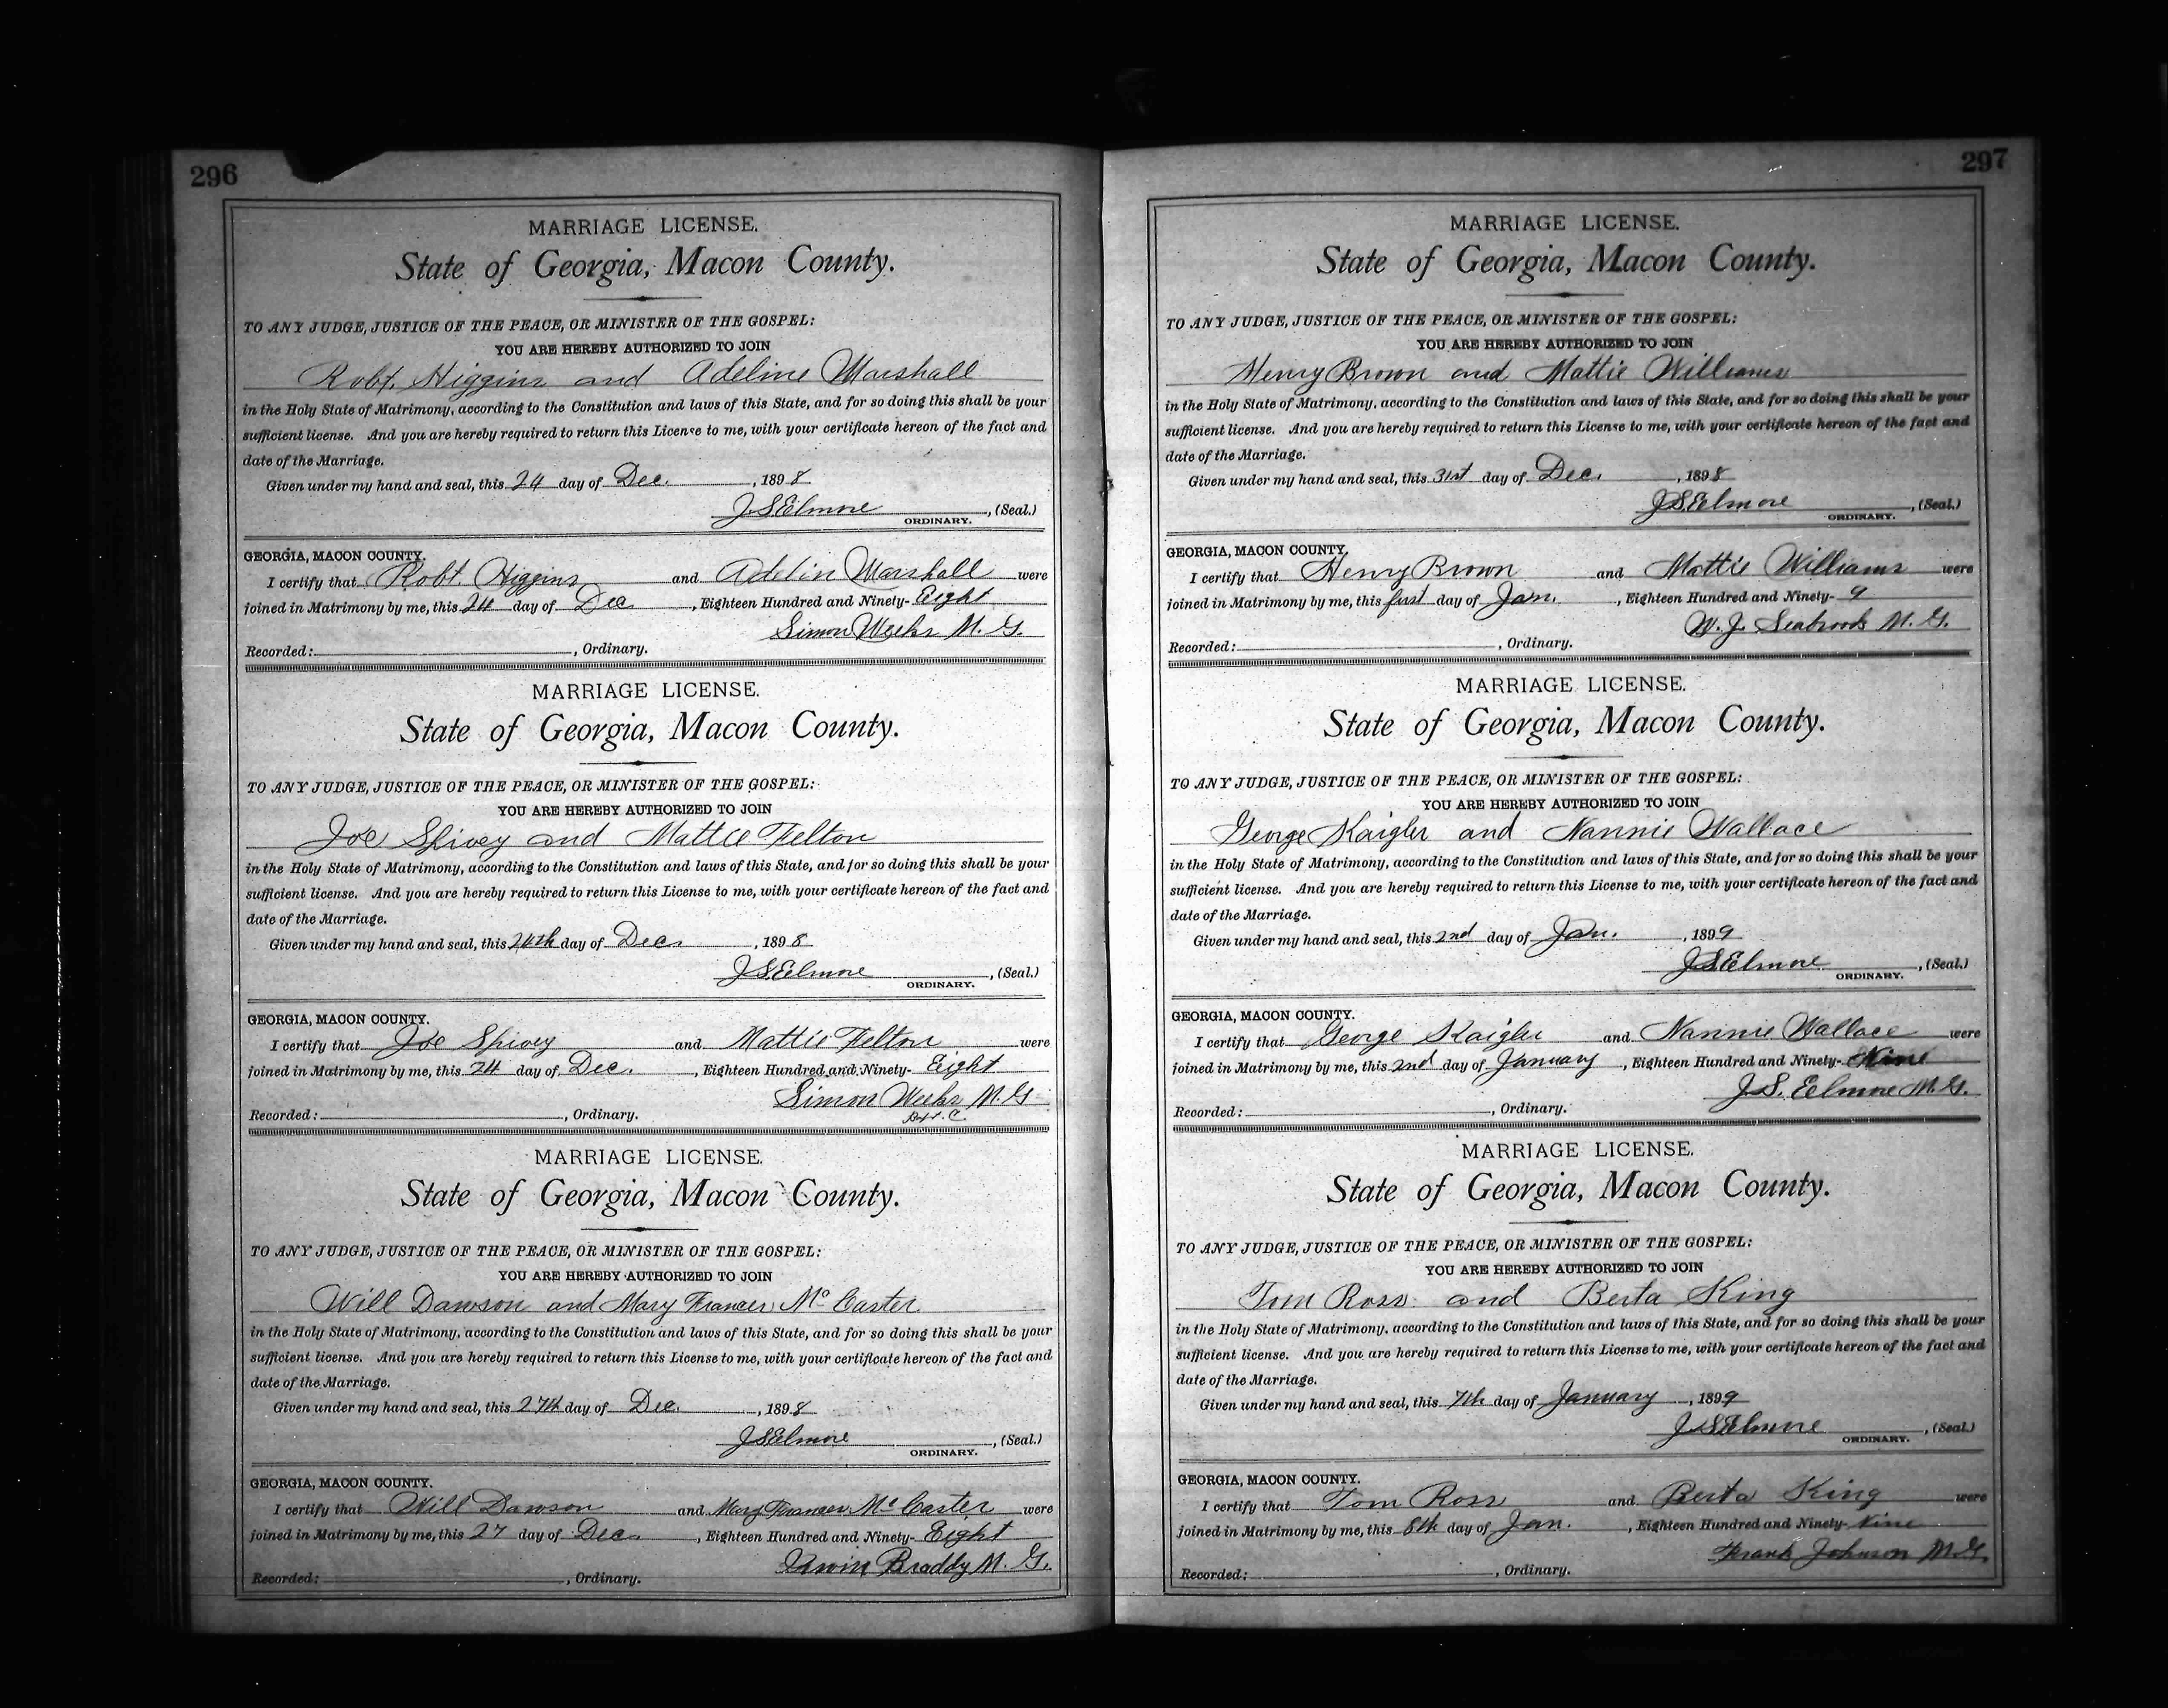 296
MARRIAGE LICENSE.
State of Georgia, Macon County.
TO ANY JUDGE, JUSTICE OF THE PEACE, OR MINISTER OF THE GOSPEL:
YOU ARE HEREBY AUTHORIZED TO JOIN
Robt. Higgins and Adeline Marshall
in the Holy State of Matrimony, according to the Constitution and laws of this State, and for so doing this shall be your
sufficient license. And you are hereby required to return this License to me, with your certificate hereon of the fact and
date of the Marriage.
Given under my hand and seal, this 24 day of Dec. , 1898
J. S. Elmore , (Seal.)
ORDINARY.
GEORGIA, MACON COUNTY.
I certify that Robt. Higgins and Adelin Marshall were
joined in Matrimony by me, this 24 day of Dec , Eighteen Hundred and Ninety- Eight
Simon Weeks M. G.
Recorded: , Ordinary.
MARRIAGE LICENSE.
State of Georgia, Macon County.
TO ANY JUDGE, JUSTICE OF THE PEACE, OR MINISTER OF THE GOSPEL:
YOU ARE HEREBY AUTHORIZED TO JOIN
Joe Spivey and Mattie Felton
in the Holy State of Matrimony, according to the Constitution and laws of this State, and for so doing this shall be your
sufficient license. And you are hereby required to return this License to me, with your certificate hereon of the fact and
date of the Marriage.
Given under my hand and seal, this 24th day of Dec. , 1898
J. S. Elmore , (Seal.)
ORDINARY.
GEORGIA, MACON COUNTY.
I certify that Joe Spivey and Mattie Felton were
joined in Matrimony by me, this 24 day of Dec. , Eighteen Hundred and Ninety- Eight
Simon Weeks M. G.
Recorded: , Ordinary.
MARRIAGE LICENSE.
State of Georgia, Macon County.
TO ANY JUDGE, JUSTICE OF THE PEACE, OR MINISTER OF THE GOSPEL:
YOU ARE HEREBY AUTHORIZED TO JOIN
Will Dawson and Mary Frances McCaster
in the Holy State of Matrimony, according to the Constitution and laws of this State, and for so doing this shall be your
sufficient license. And you are hereby required to return this License to me, with your certificate hereon of the fact and
date of the Marriage.
Given under my hand and seal, this 27th day of Dec. , 1898
J. S. Elmore , (Seal.)
ORDINARY.
GEORGIA, MACON COUNTY.
I certify that Will Dawson and Mary Frances McCaster were
joined in Matrimony by me, this 27 day of Dec. , Eighteen Hundred and Ninety- Eight
Irwin Braddy M. G.
Recorded: , Ordinary.
297
MARRIAGE LICENSE.
State of Georgia, Macon County.
TO ANY JUDGE, JUSTICE OF THE PEACE, OR MINISTER OF THE GOSPEL:
YOU ARE HEREBY AUTHORIZED TO JOIN
Henry Brown and Mattie Williams
in the Holy State of Matrimony, according to the Constitution and laws of this State, and for so doing this shall be your
sufficient license. And you are hereby required to return this License to me, with your certificate hereon of the fact and
date of the Marriage.
Given under my hand and seal, this 31st day of Dec. , 1898
J. S. Elmore , (Seal.)
ORDINARY.
GEORGIA, MACON COUNTY.
I certify that Henry Brown and Mattie Williams were
joined in Matrimony by me, this first day of Jan. , Eighteen Hundred and Ninety- 9
W. J. Seabrook M. G.
Recorded: , Ordinary.
MARRIAGE LICENSE.
State of Georgia, Macon County.
TO ANY JUDGE, JUSTICE OF THE PEACE, OR MINISTER OF THE GOSPEL:
YOU ARE HEREBY AUTHORIZED TO JOIN
George Kaigler and Nannie Wallace
in the Holy State of Matrimony, according to the Constitution and laws of this State, and for so doing this shall be your
sufficient license. And you are hereby required to return this License to me, with your certificate hereon of the fact and
date of the Marriage.
Given under my hand and seal, this 2nd day of Jan. , 1899
J. S. Elmore , (Seal.)
ORDINARY.
GEORGIA, MACON COUNTY.
I certify that George Kaigler and Nannie Wallace were
joined in Matrimony by me, this 2nd day of January , Eighteen Hundred and Ninety- Nine
J. S. Eelmore M. G.
Recorded: , Ordinary.
MARRIAGE LICENSE.
State of Georgia, Macon County.
TO ANY JUDGE, JUSTICE OF THE PEACE, OR MINISTER OF THE GOSPEL:
YOU ARE HEREBY AUTHORIZED TO JOIN
Tom Ross and Berta King
in the Holy State of Matrimony, according to the Constitution and laws of this State, and for so doing this shall be your
sufficient license. And you are hereby required to return this License to me, with your certificate hereon of the fact and
date of the Marriage.
Given under my hand and seal, this 7th day of January , 1899
J. S. Elmore , (Seal.)
ORDINARY.
GEORGIA, MACON COUNTY.
I certify that Tom Ross and Berta King were
joined in Matrimony by me, this 8th day of Jan. , Eighteen Hundred and Ninety- Nine
Frank Johnson M. G.
Recorded: , Ordinary.